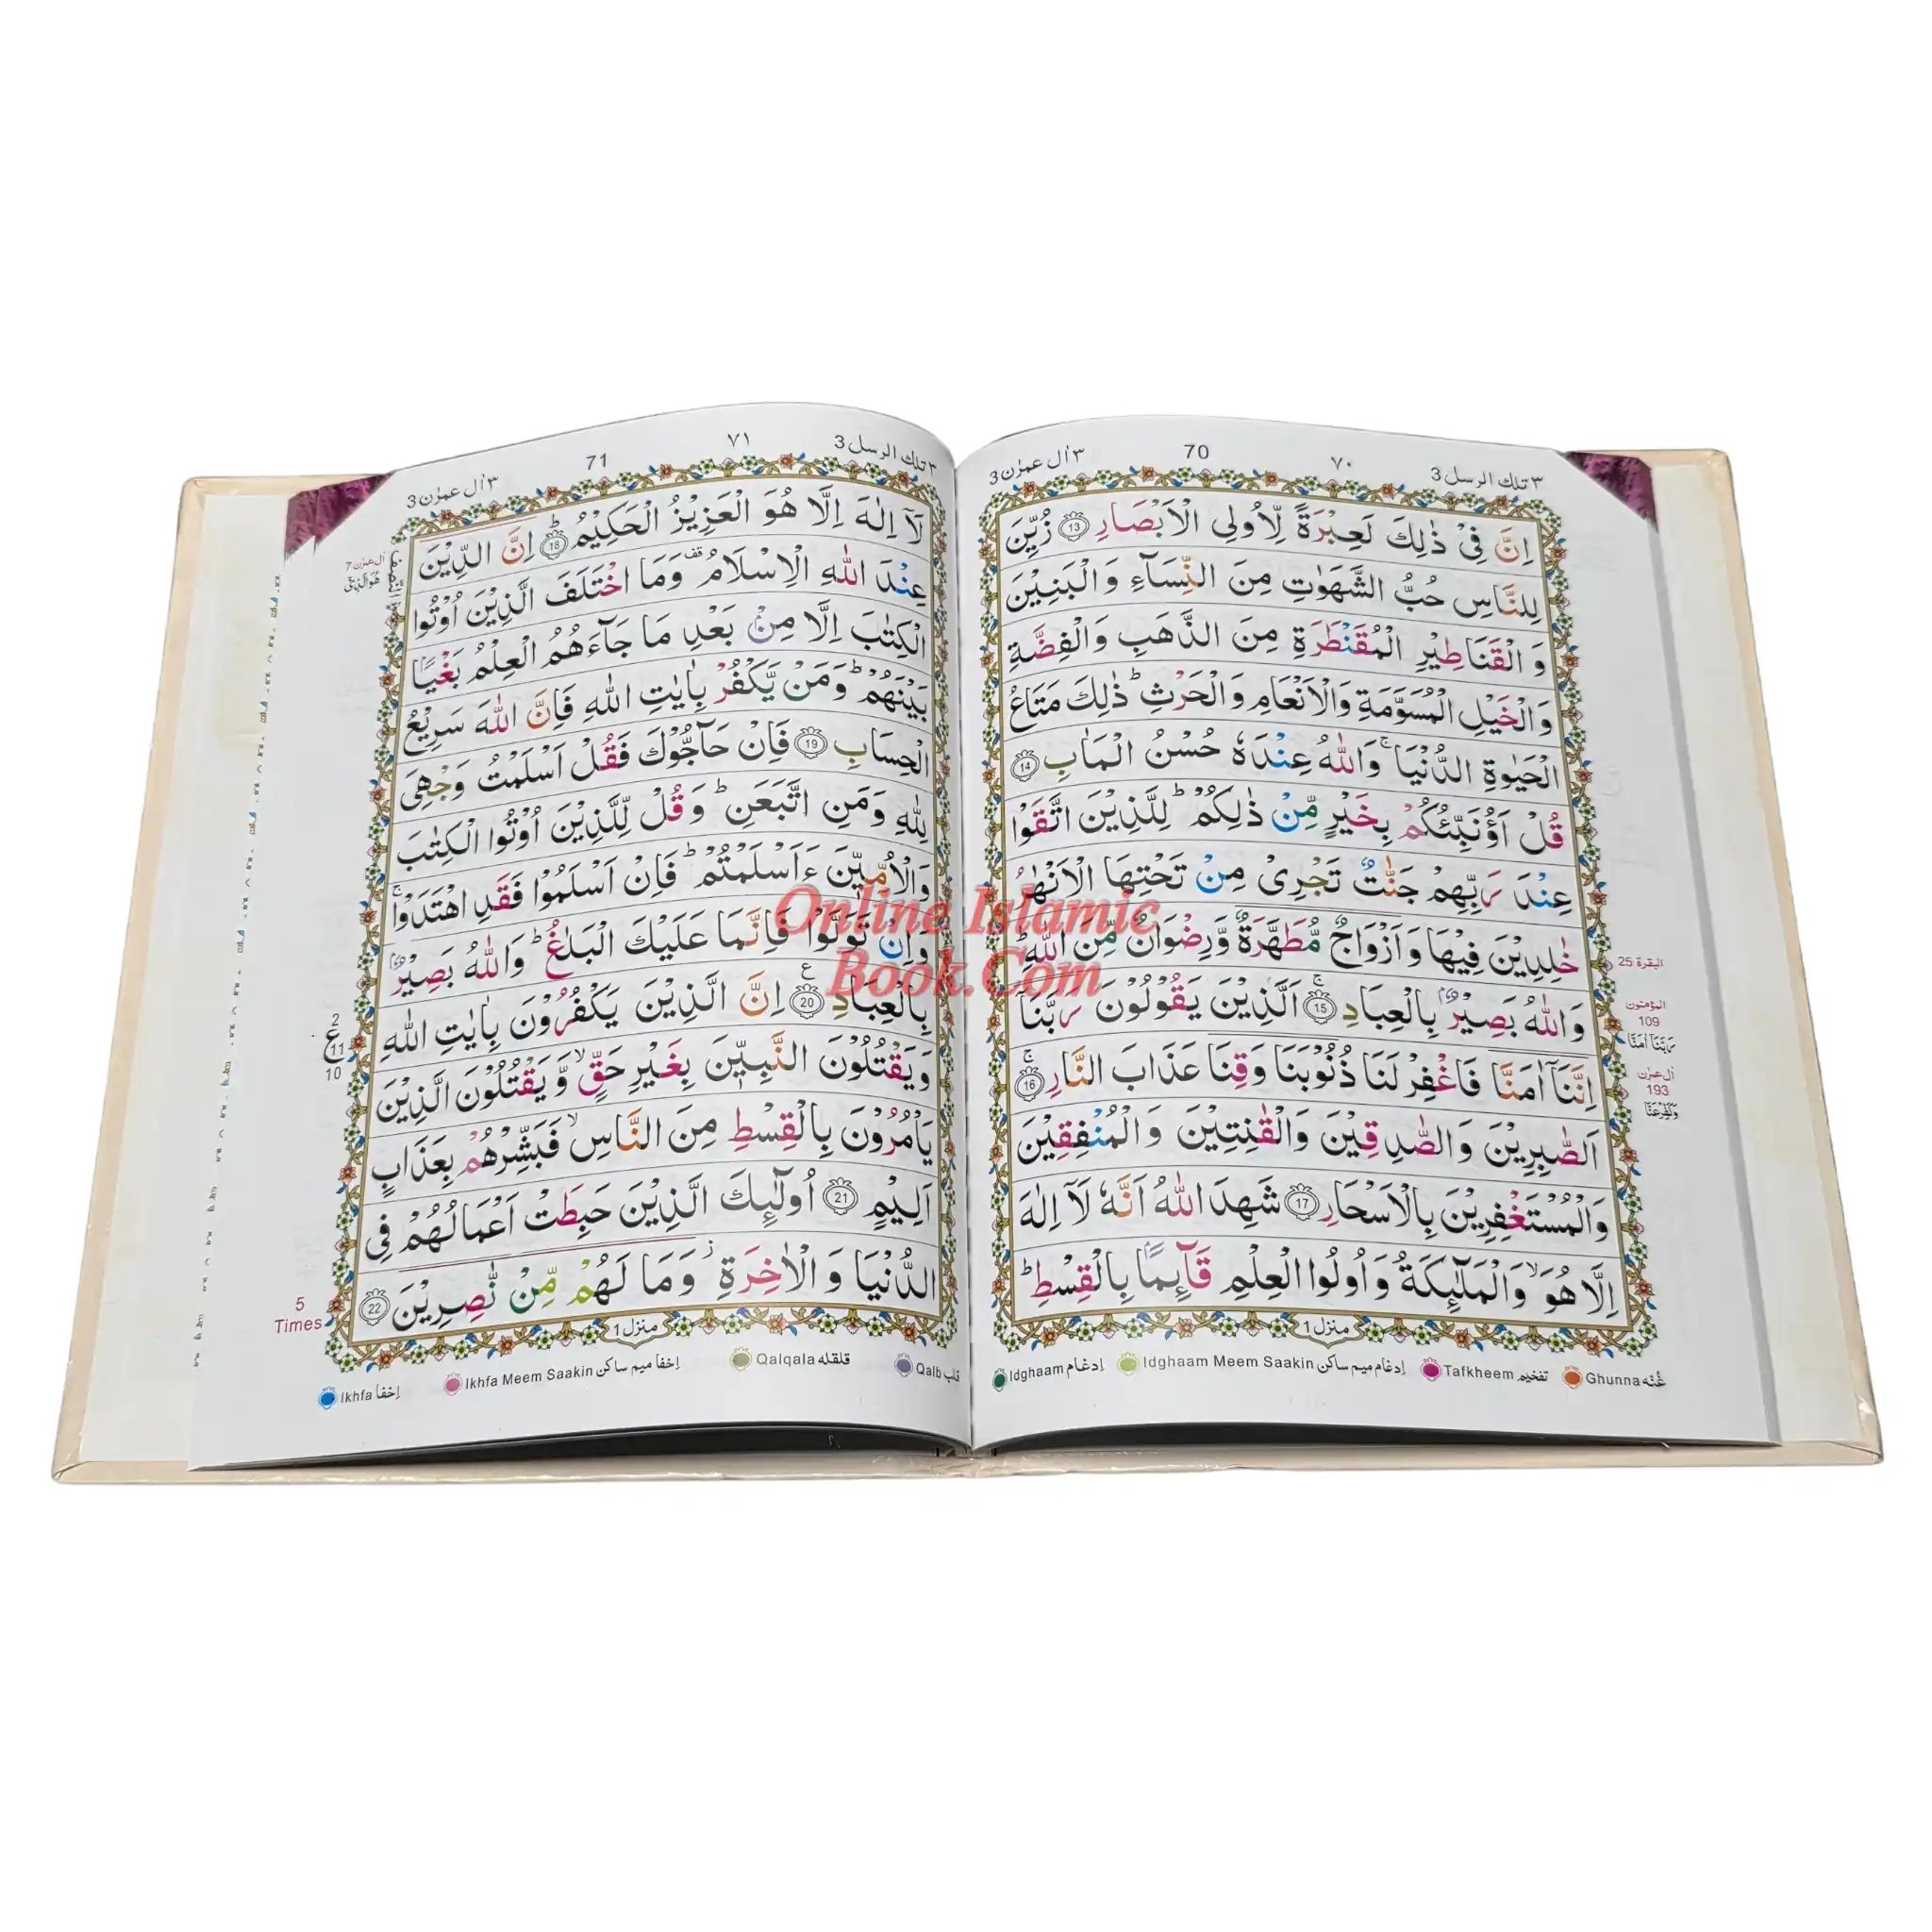 ٣ تلك الرسل 3
٧٠
70
٣ اٰل عمرٰن 3
اِنَّ فِىْ ذٰلِكَ لَعِبْرَةً لِّاُولِى الْاَبْصَارِ 13 زُيِّنَ
لِلنَّاسِ حُبُّ الشَّهَوٰتِ مِنَ النِّسَآءِ وَالْبَنِيْنَ
وَالْقَنَاطِيْرِ الْمُقَنْطَرَةِ مِنَ الذَّهَبِ وَالْفِضَّةِ
وَالْخَيْلِ الْمُسَوَّمَةِ وَالْاَنْعَامِ وَالْحَرْثِ ؕ ذٰلِكَ مَتَاعُ
الْحَيٰوةِ الدُّنْيَا ۚ وَاللّٰهُ عِنْدَهٗ حُسْنُ الْمَاٰبِ 14
قُلْ اَؤُنَبِّئُكُمْ بِخَيْرٍ مِّنْ ذٰلِكُمْ ؕ لِلَّذِيْنَ اتَّقَوْا
عِنْدَ رَبِّهِمْ جَنّٰتٌ تَجْرِىْ مِنْ تَحْتِهَا الْاَنْهٰرُ
خٰلِدِيْنَ فِيْهَا وَاَزْوَاجٌ مُّطَهَّرَةٌ وَّرِضْوَانٌ مِّنَ اللّٰهِ ؕ
وَاللّٰهُ بَصِيْرٌۢ بِالْعِبَادِ 15 ۚ اَلَّذِيْنَ يَقُوْلُوْنَ رَبَّنَاۤ
اِنَّنَاۤ اٰمَنَّا فَاغْفِرْ لَنَا ذُنُوْبَنَا وَقِنَا عَذَابَ النَّارِ 16 ۚ
اَلصّٰبِرِيْنَ وَالصّٰدِقِيْنَ وَالْقٰنِتِيْنَ وَالْمُنْفِقِيْنَ
وَالْمُسْتَغْفِرِيْنَ بِالْاَسْحَارِ 17 شَهِدَ اللّٰهُ اَنَّهٗ لَاۤ اِلٰهَ
اِلَّا هُوَ ۙ وَالْمَلٰٓئِكَةُ وَاُولُوا الْعِلْمِ قَآئِمًاۢ بِالْقِسْطِ ؕ
منزل 1
البقرة 25
المؤمنون
109
رَبَّنَاۤ اٰمَنَّا
اٰل عمرٰن
193
Idghaam اِدغام
Idghaam Meem Saakin اِدغام میم ساکن
Tafkheem تفخیم
Ghunna غُنّه
٣ تلك الرسل 3
٧١
71
٣ اٰل عمرٰن 3
لَاۤ اِلٰهَ اِلَّا هُوَ الْعَزِيْزُ الْحَكِيْمُ ؕ 18 اِنَّ الدِّيْنَ
عِنْدَ اللّٰهِ الْاِسْلَامُ قف وَمَا اخْتَلَفَ الَّذِيْنَ اُوْتُوا
الْكِتٰبَ اِلَّا مِنْۢ بَعْدِ مَا جَآءَهُمُ الْعِلْمُ بَغْيًاۢ
بَيْنَهُمْ ؕ وَمَنْ يَّكْفُرْ بِاٰيٰتِ اللّٰهِ فَاِنَّ اللّٰهَ سَرِيْعُ
الْحِسَابِ 19 فَاِنْ حَآجُّوْكَ فَقُلْ اَسْلَمْتُ وَجْهِىَ
لِلّٰهِ وَمَنِ اتَّبَعَنِ ؕ وَقُلْ لِّلَّذِيْنَ اُوْتُوا الْكِتٰبَ
وَالْاُمِّيّٖنَ ءَاَسْلَمْتُمْ ؕ فَاِنْ اَسْلَمُوْا فَقَدِ اهْتَدَوْا ۚ
وَاِنْ تَوَلَّوْا فَاِنَّمَا عَلَيْكَ الْبَلٰغُ ؕ وَاللّٰهُ بَصِيْرٌۢ
بِالْعِبَادِ 20 ع اِنَّ الَّذِيْنَ يَكْفُرُوْنَ بِاٰيٰتِ اللّٰهِ
وَيَقْتُلُوْنَ النَّبِيّٖنَ بِغَيْرِ حَقٍّ ۙ وَّيَقْتُلُوْنَ الَّذِيْنَ
يَاْمُرُوْنَ بِالْقِسْطِ مِنَ النَّاسِ ۙ فَبَشِّرْهُمْ بِعَذَابٍ
اَلِيْمٍ 21 اُولٰٓئِكَ الَّذِيْنَ حَبِطَتْ اَعْمَالُهُمْ فِى
الدُّنْيَا وَالْاٰخِرَةِ ؗ وَمَا لَهُمْ مِّنْ نّٰصِرِيْنَ 22
منزل 1
اٰل عمرٰن 7
2
ع
11
10
5
Times
Ikhfa اِخفا
Ikhfa Meem Saakin اِخفا میم ساکن
Qalqala قلقله
Qalb قلب
Online Islamic
Book.Com